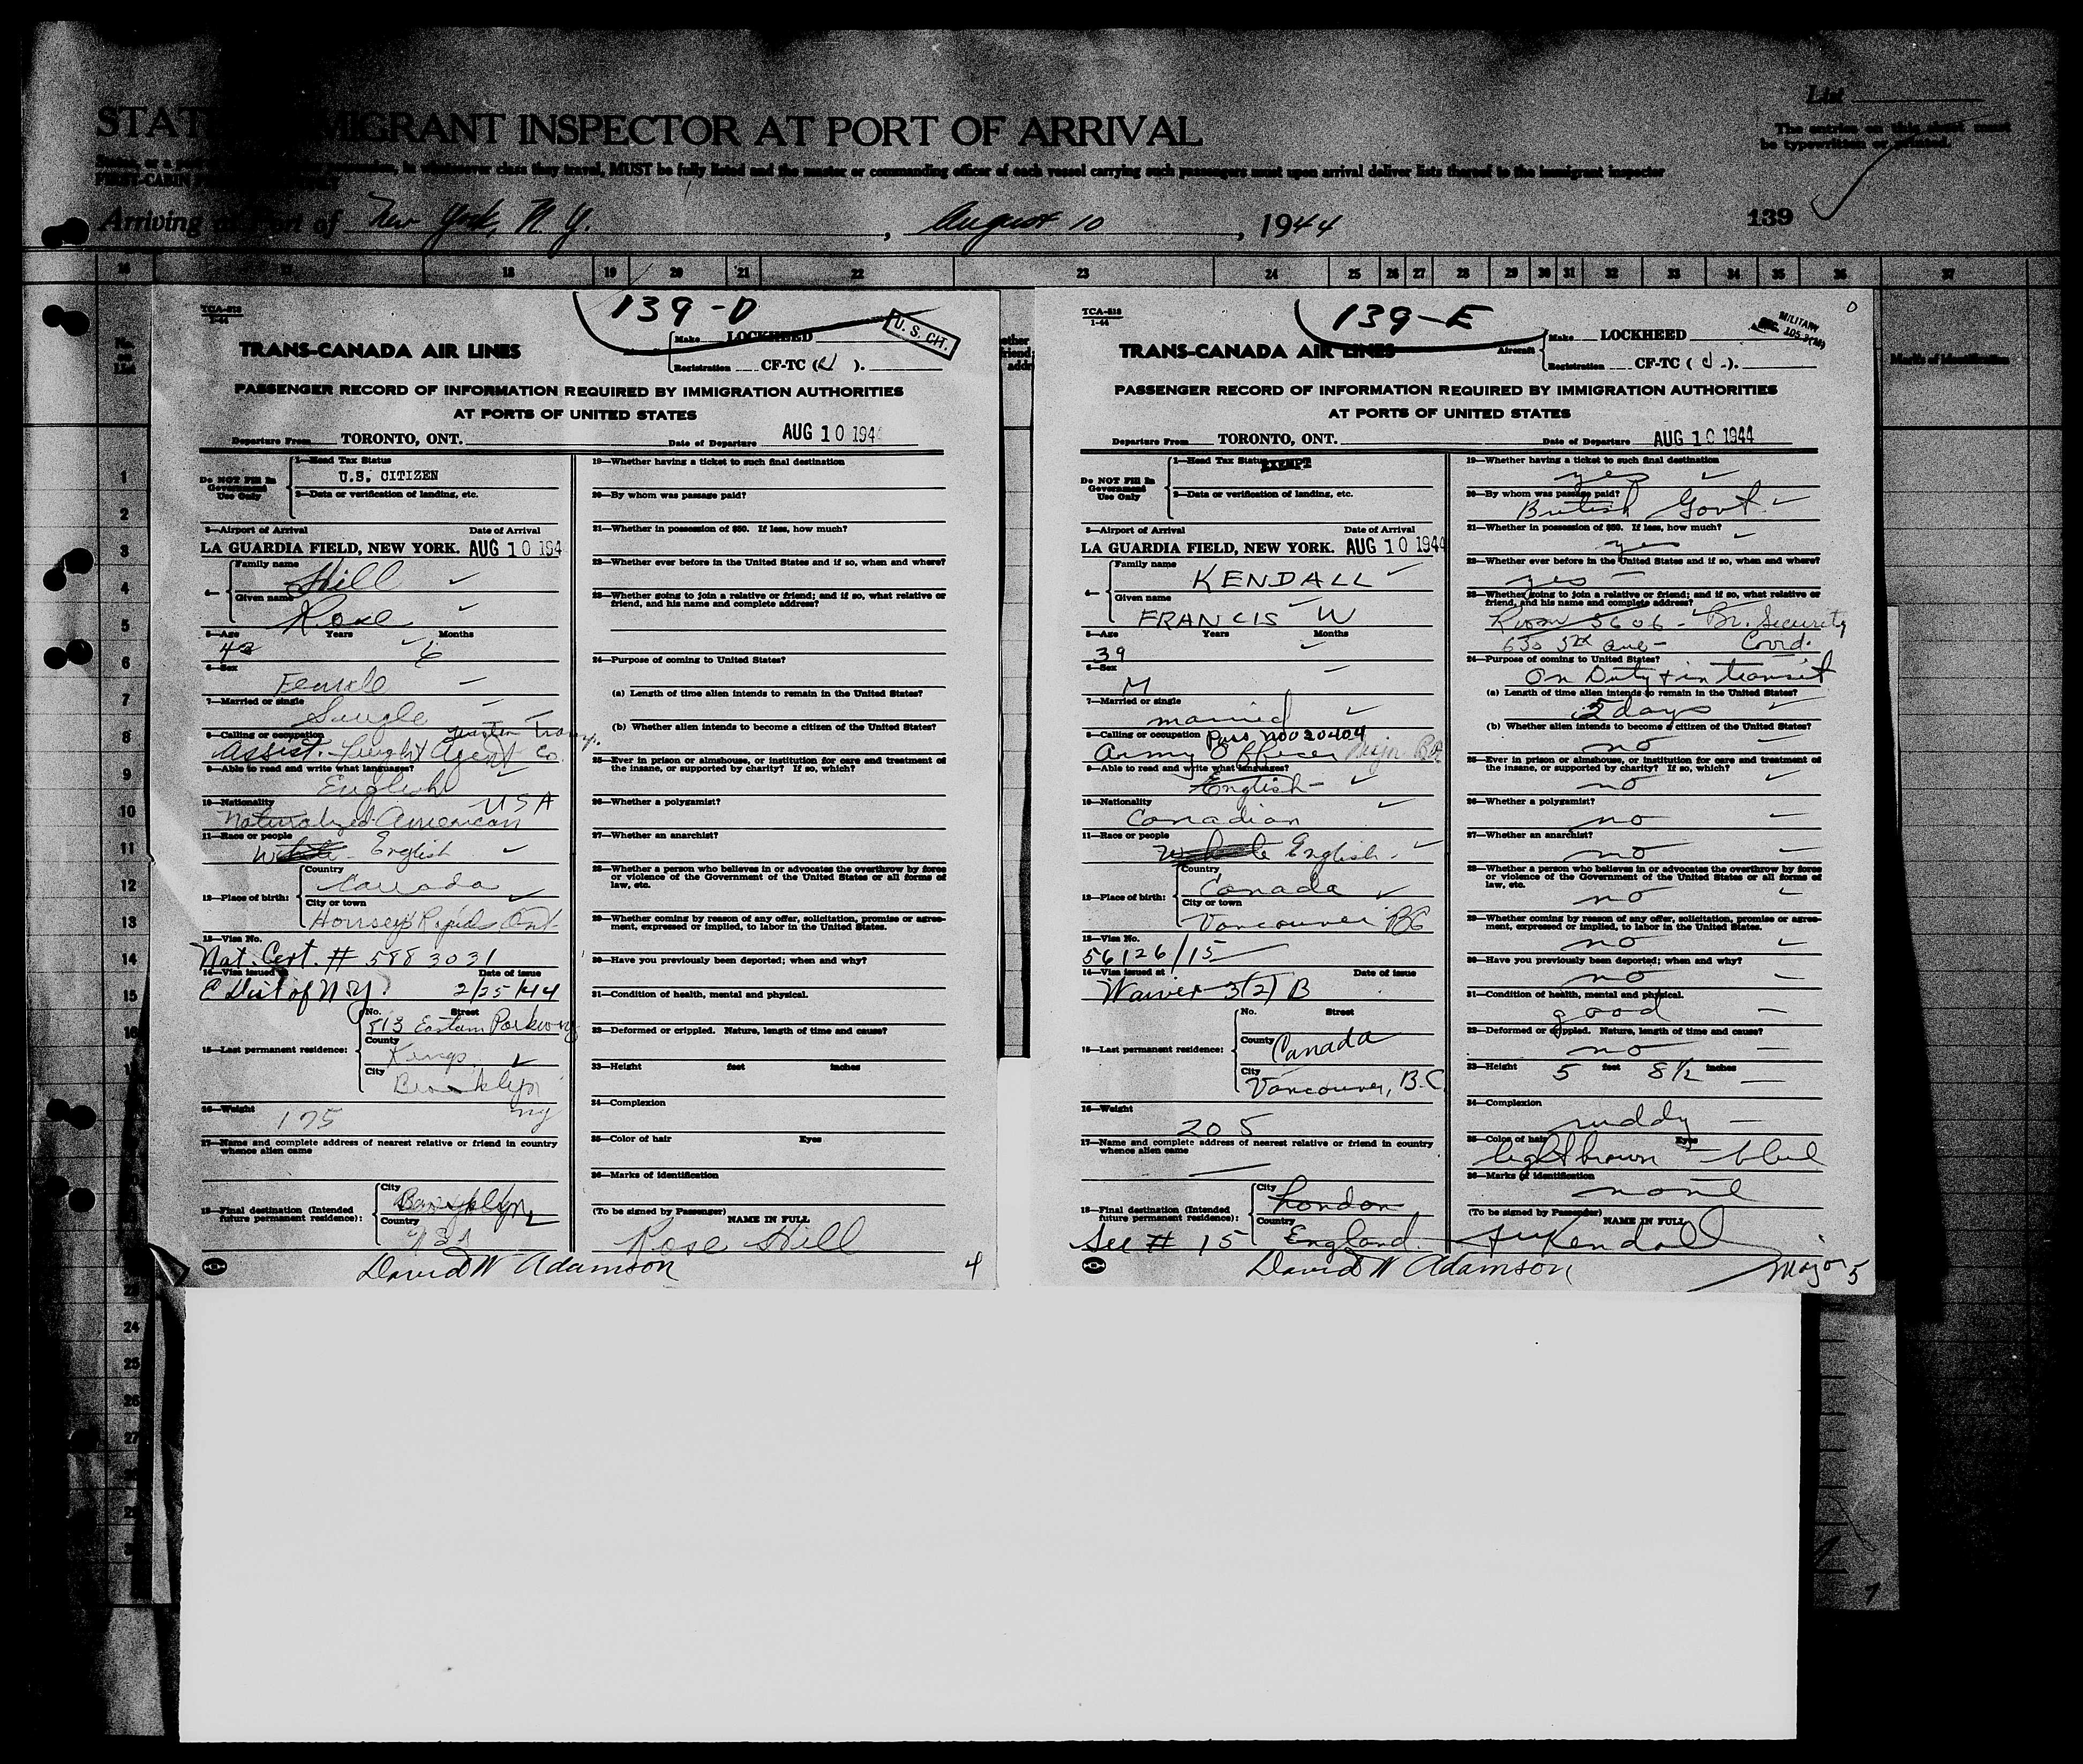 List
STATE IMMIGRANT INSPECTOR AT PORT OF ARRIVAL
The entries on this sheet must
be typewritten or printed.
in whatsoever class they travel, MUST be fully listed and the master or commanding officer of each vessel carrying such passengers must upon arrival deliver lists thereof to the immigrant inspector
Arriving at Port of New York, N. Y. , August 10 , 1944
139
16 17 18 19 20 21 22 23 24 25 26 27 28 29 30 31 32 33 34 35 36 37
No. on List
Marks of identification
1
2
3
4
5
6
7
8
9
10
11
12
13
14
15
16
24
25
26
27
TCA-518
1-44
139-D
U. S. CIT.
TRANS-CANADA AIR LINES
Make LOCKHEED
Registration CF-TC ( ).
PASSENGER RECORD OF INFORMATION REQUIRED BY IMMIGRATION AUTHORITIES
AT PORTS OF UNITED STATES
Departure From TORONTO, ONT. Date of Departure AUG 10 194
Do NOT Fill In Government Use Only
1—Head Tax Status
U.S. CITIZEN
2—Data or verification of landing, etc.
3—Airport of Arrival Date of Arrival
LA GUARDIA FIELD, NEW YORK. AUG 10 194
4— Family name
Hill
Given name
Rose
5—Age Years Months
42 6
6—Sex
Female
7—Married or single
Single
8—Calling or occupation
Assist. Freight Agent Co.
9—Able to read and write what languages?
English
10—Nationality USA
Naturalized American
11—Race or people
White - English
12—Place of birth: Country
Canada
City or town
Rapids Ont
13—Visa No.
Nat. Cert. # 5883031
14—Visa issued at Date of issue
E Dist of N Y 2/25/44
15—Last permanent residence: No. Street
813 Eastern Parkway
County
Kings
City
Brooklyn
NY
16—Weight
175
17—Name and complete address of nearest relative or friend in country
whence alien came
18—Final destination (Intended
future permanent residence): City
Brooklyn
Country
David W Adamson
19—Whether having a ticket to such final destination
20—By whom was passage paid?
21—Whether in possession of $50. If less, how much?
22—Whether ever before in the United States and if so, when and where?
23—Whether going to join a relative or friend; and if so, what relative or
friend, and his name and complete address?
24—Purpose of coming to United States?
(a) Length of time alien intends to remain in the United States?
(b) Whether alien intends to become a citizen of the United States?
25—Ever in prison or almshouse, or institution for care and treatment of
the insane, or supported by charity? If so, which?
26—Whether a polygamist?
27—Whether an anarchist?
28—Whether a person who believes in or advocates the overthrow by force
or violence of the Government of the United States or all forms of
law, etc.
29—Whether coming by reason of any offer, solicitation, promise or agree-
ment, expressed or implied, to labor in the United States.
30—Have you previously been deported; when and why?
31—Condition of health, mental and physical.
32—Deformed or crippled. Nature, length of time and cause?
33—Height feet inches
34—Complexion
35—Color of hair Eyes
36—Marks of identification
(To be signed by Passenger) NAME IN FULL
Rose Hill
4
TCA-518
1-44
139-E
MILITARY
TRANS-CANADA AIR LINES
Aircraft Make LOCKHEED
Registration CF-TC ( ).
PASSENGER RECORD OF INFORMATION REQUIRED BY IMMIGRATION AUTHORITIES
AT PORTS OF UNITED STATES
Departure From TORONTO, ONT. Date of Departure AUG 10 1944
Do NOT Fill In Government Use Only
1—Head Tax Status EXEMPT
2—Data or verification of landing, etc.
3—Airport of Arrival Date of Arrival
LA GUARDIA FIELD, NEW YORK. AUG 10 1944
4— Family name
KENDALL
Given name
FRANCIS W
5—Age Years Months
39
6—Sex
M
7—Married or single
married
8—Calling or occupation Pass No 020404
Army Officer
9—Able to read and write what languages?
English
10—Nationality
Canadian
11—Race or people
White English
12—Place of birth: Country
Canada
City or town
Vancouver BC
13—Visa No.
56126/15
14—Visa issued at Date of issue
Waiver 3(2) B
15—Last permanent residence: No. Street
County
Canada
City
Vancouver, B.C.
16—Weight
205
17—Name and complete address of nearest relative or friend in country
whence alien came
18—Final destination (Intended
future permanent residence): City
London
Country
England
See # 15
David W Adamson
19—Whether having a ticket to such final destination
yes
20—By whom was passage paid?
British Govt.
21—Whether in possession of $50. If less, how much?
yes
22—Whether ever before in the United States and if so, when and where?
yes
23—Whether going to join a relative or friend; and if so, what relative or
friend, and his name and complete address?
Room 3606 - Br. Security
630 5th ave - Coord.
24—Purpose of coming to United States?
On Duty & in transit
(a) Length of time alien intends to remain in the United States?
2 days
(b) Whether alien intends to become a citizen of the United States?
no
25—Ever in prison or almshouse, or institution for care and treatment of
the insane, or supported by charity? If so, which?
no
26—Whether a polygamist?
no
27—Whether an anarchist?
no
28—Whether a person who believes in or advocates the overthrow by force
or violence of the Government of the United States or all forms of
law, etc.
no
29—Whether coming by reason of any offer, solicitation, promise or agree-
ment, expressed or implied, to labor in the United States.
no
30—Have you previously been deported; when and why?
no
31—Condition of health, mental and physical.
good
32—Deformed or crippled. Nature, length of time and cause?
no
33—Height 5 feet 8 1/2 inches
34—Complexion
ruddy
35—Color of hair Eyes
light brown - blue
36—Marks of identification
none
(To be signed by Passenger) NAME IN FULL
FWKendall
Major 5